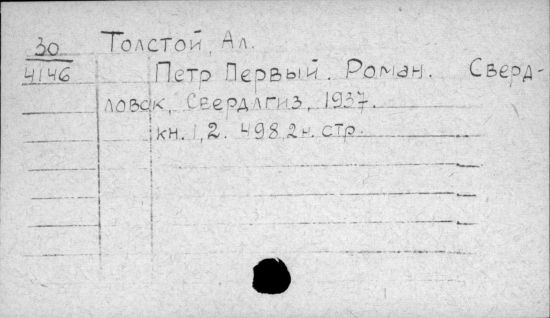 30 Толстой, Ал.
4146 Петр Первый. Роман. Сверд-
ловск, Свердлгиз, 1937.
кн. 1, 2. 498, 2 н. стр.